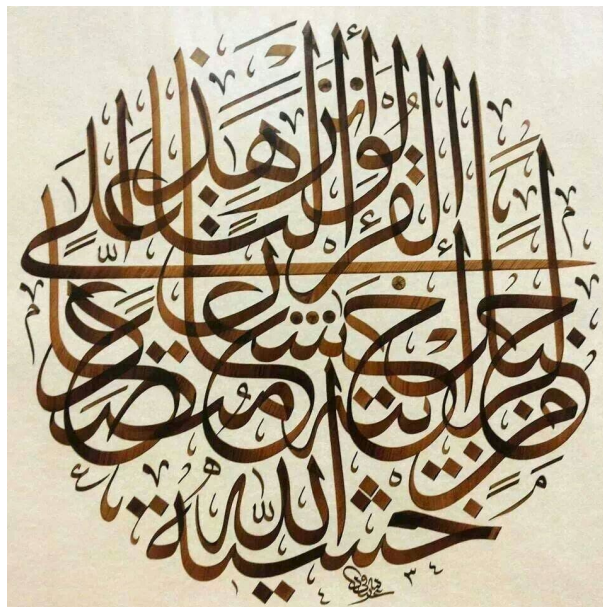 لو أنزلنا هذا القرآن على
جبل لرأيته خاشعا متصدعا من
خشية الله
١٤٣٤